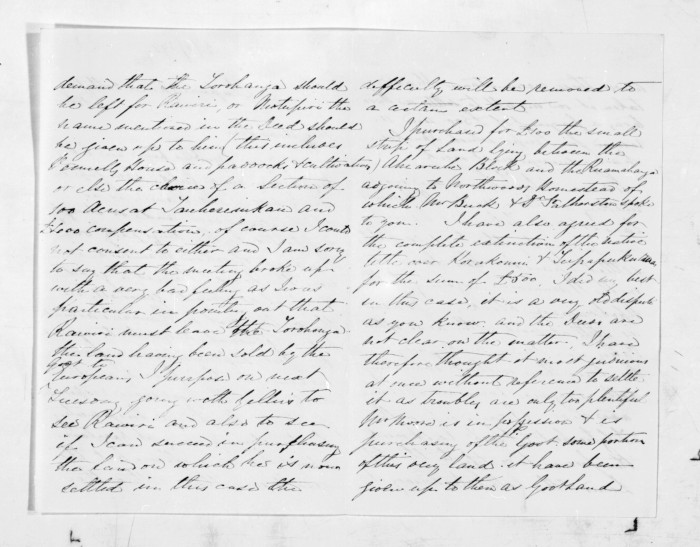 demand that the Torohanga should
be left for Rawiri, or Matupiri the
name mentioned in the Deed should
be given up to him (this includes
House and paddocks & cultivation)
or else the choice of a Section of
100 Acres at Tauherenikau and
£1000 compensation, of course I could
not consent to either and I am sorry
to say that the meeting broke up
with a very bad feeling as I was
particular in pointing out that
Rawiri must leave the Torohanga
the land having been sold by the
Govt to
Europeans, I purpose on next
Tuesday going with to
see Rawiri and also to see
if I can succeed in purchasing
the land on which he is now
settled in this case the
difficulty will be removed to
a certain extent
I purchased for £100 the small
strip of Land lying between the
Ahiaruhe Block and the Ruamahanga
adjoining to Northwoods Homestead of
which Mr Buck & Dr Featherston spoke
to you. I have also agreed for
the complete extinction of the native
title over &
for the sum of £500. I did my best
in this case, it is a very old dispute
as you know, and the Deeds are
not clear on the matter. I have
therefore thought it most judicious
at once without reference to settle
it as troubles are only too plentiful
Mr is in possession & is
purchasing of the Govt some portion
of this very land it have been
given up to them as Govt land